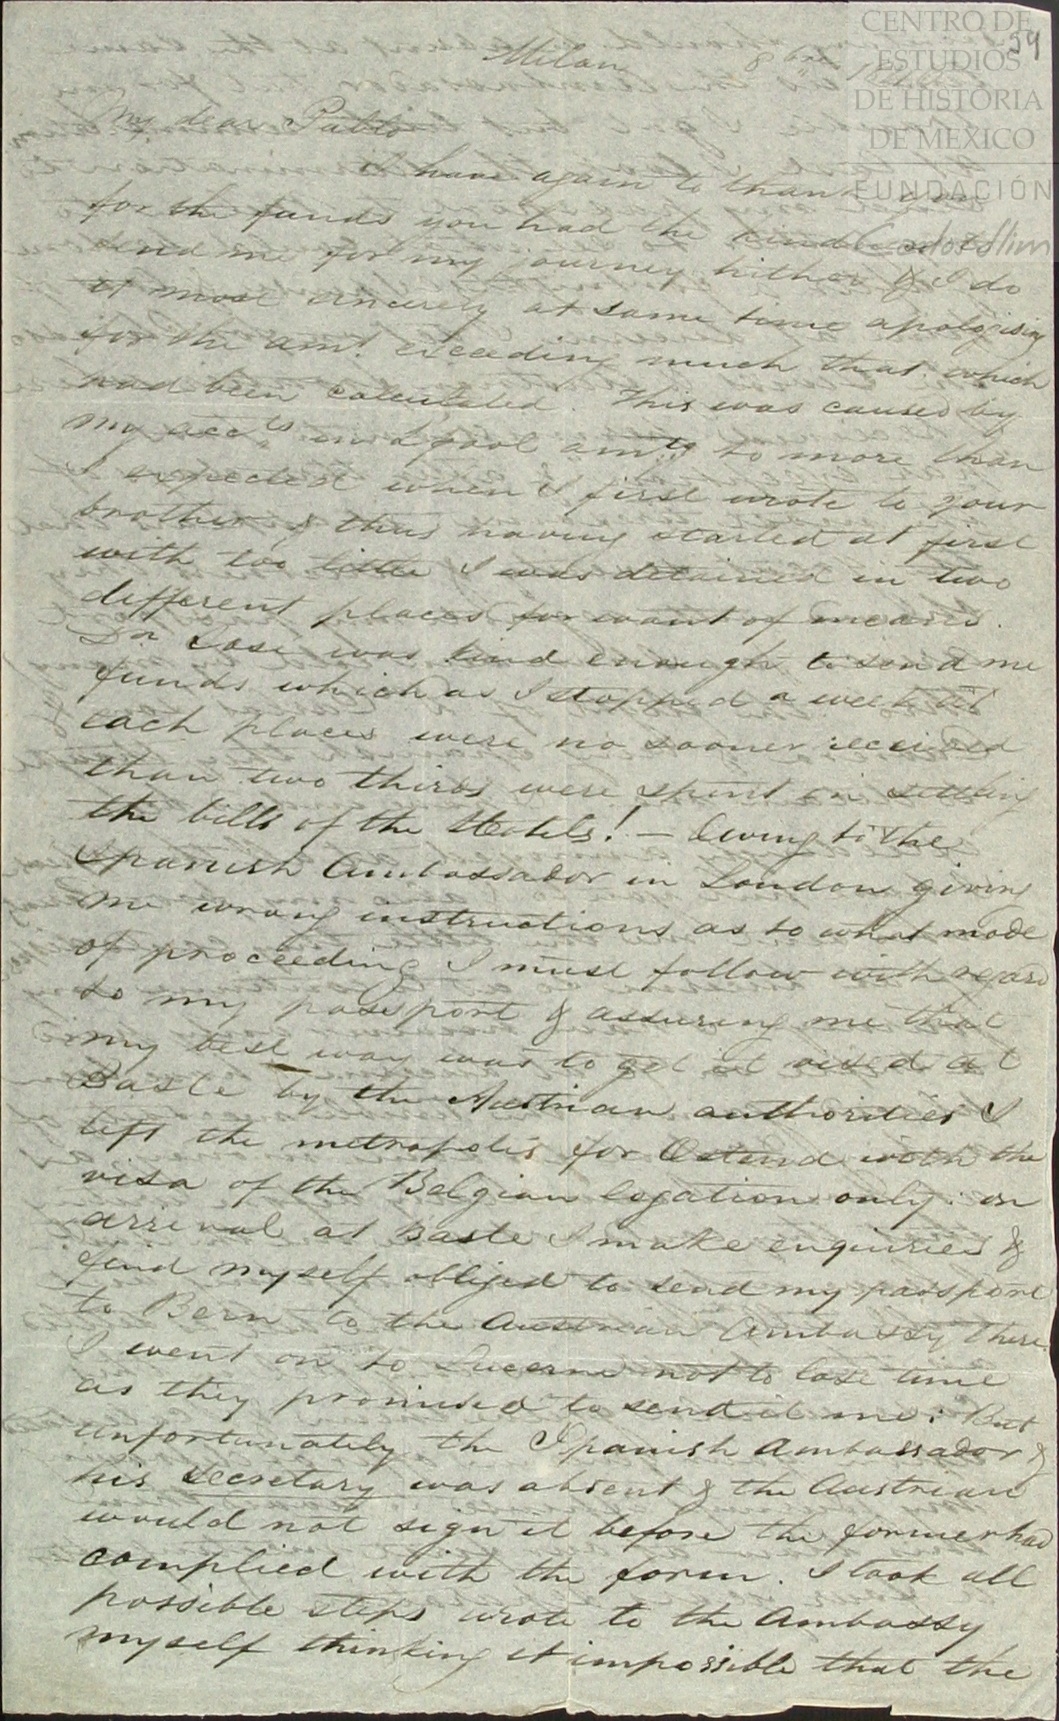 CENTRO DE
ESTUDIOS
DE HISTORIA
DE MEXICO
FUNDACIÓN
39
Milan 8bre
My dear Pablo
I have again to thank you
for the funds you had the kindness to
send me for my journey hither & I do
it most sincerely at same time apologising
for the amt. exceeding much that which
had been calculated. This was caused by
my accts in L'pool amtg to more than
I expected when I first wrote to your
brother & thus having started at first
with too little I was detained in two
different places for want of means.
Dn José was kind enough to send me
funds which as I stopped a week at
each places were no sooner received
than two thirds were spent in settling
the bills of the Hotels! — Owing to the
Spanish Ambassador in London giving
me wrong instructions as to what mode
of proceeding I must follow with regard
to my passport & assuring me that
my best way was to get it vised at
Basle by the Austrian authorities I
left the metropolis for Ostend with the
visa of the Belgian legation only: on
arrival at Basle I make enquiries &
find myself obliged to send my passport
to Bern to the Austrian Ambassy there.
I went on to Lucerne not to lose time
as they promised to send it me: But
unfortunately the Spanish Ambassador &
his secretary was absent & the Austrian
would not sign it before the former had
complied with the form. I took all
possible steps wrote to the Ambassy
myself thinking it impossible that the